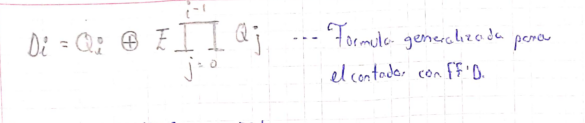 Di = Qi ⊕ E ∏_{j=0}^{i-1} Qj --- Formula generalizada para
el contador con FF'D.